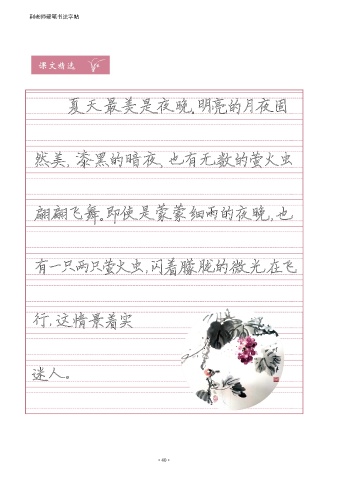 田英章硬笔书法字帖
课文精选
夏天最美是夜晚。明亮的月夜固
然美，漆黑的暗夜，也有无数的萤火虫
翩翩飞舞。即使是蒙蒙细雨的夜晚，也
有一只两只萤火虫，闪着朦胧的微光在飞
行，这情景着实
迷人。
·40·